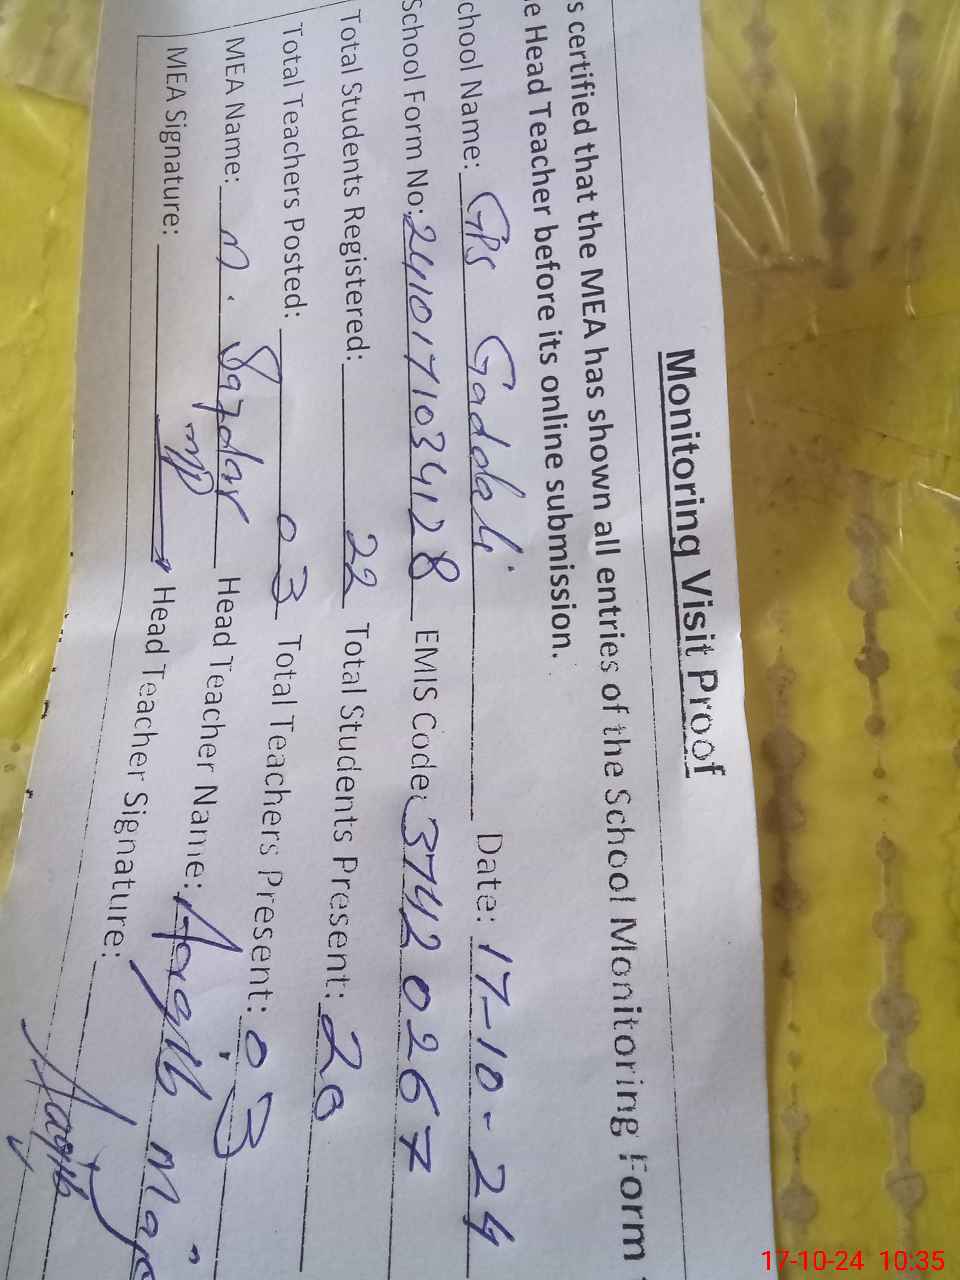 Monitoring Visit Proof
s certified that the MEA has shown all entries of the School Monitoring Form
e Head Teacher before its online submission.
chool Name: GPS Gaddali Date: 17-10-24
School Form No: 2410171034128 EMIS Code: 37420267
Total Students Registered: 22 Total Students Present: 20
Total Teachers Posted: 03 Total Teachers Present: 03
MEA Name: M. Safdar Head Teacher Name:
MEA Signature: Head Teacher Signature:
17-10-24 10:35